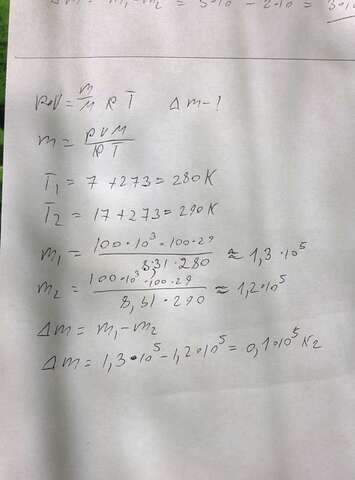 Δm = m₁-m₂ = 3·10 - 2·10 = 3·10
p·V = m/M R T Δm-?
m = pVM/RT
T₁ = 7+273 = 280K
T₂ = 17+273 = 290K
m₁ = 100·10³·100·29/8,31·280 ≈ 1,3·10⁵
m₂ = 100·10³·100·29/8,31·290 ≈ 1,2·10⁵
Δm = m₁-m₂
Δm = 1,3·10⁵-1,2·10⁵ = 0,1·10⁵ кг